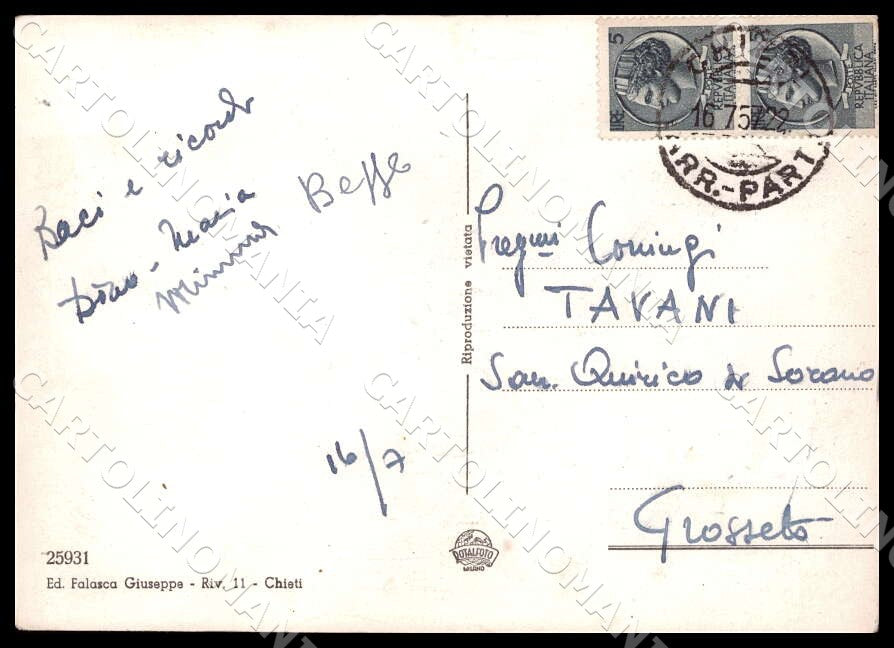 Baci e ricordi
Dino - Maria
Mimma Beppe
16/7
25931
Ed. Falasca Giuseppe - Riv. 11 - Chieti
Riproduzione vietata
ROTALFOTO
MILANO
LIRE 5
REPVBBLICA
ITALIANA
REPVBBLICA
ITALIANA
16.7.57.22
ARR.-PART.
Preg.mi Coniugi
TAVANI
San Quirico di Sorano
Grosseto
CARTOLINOMANIA